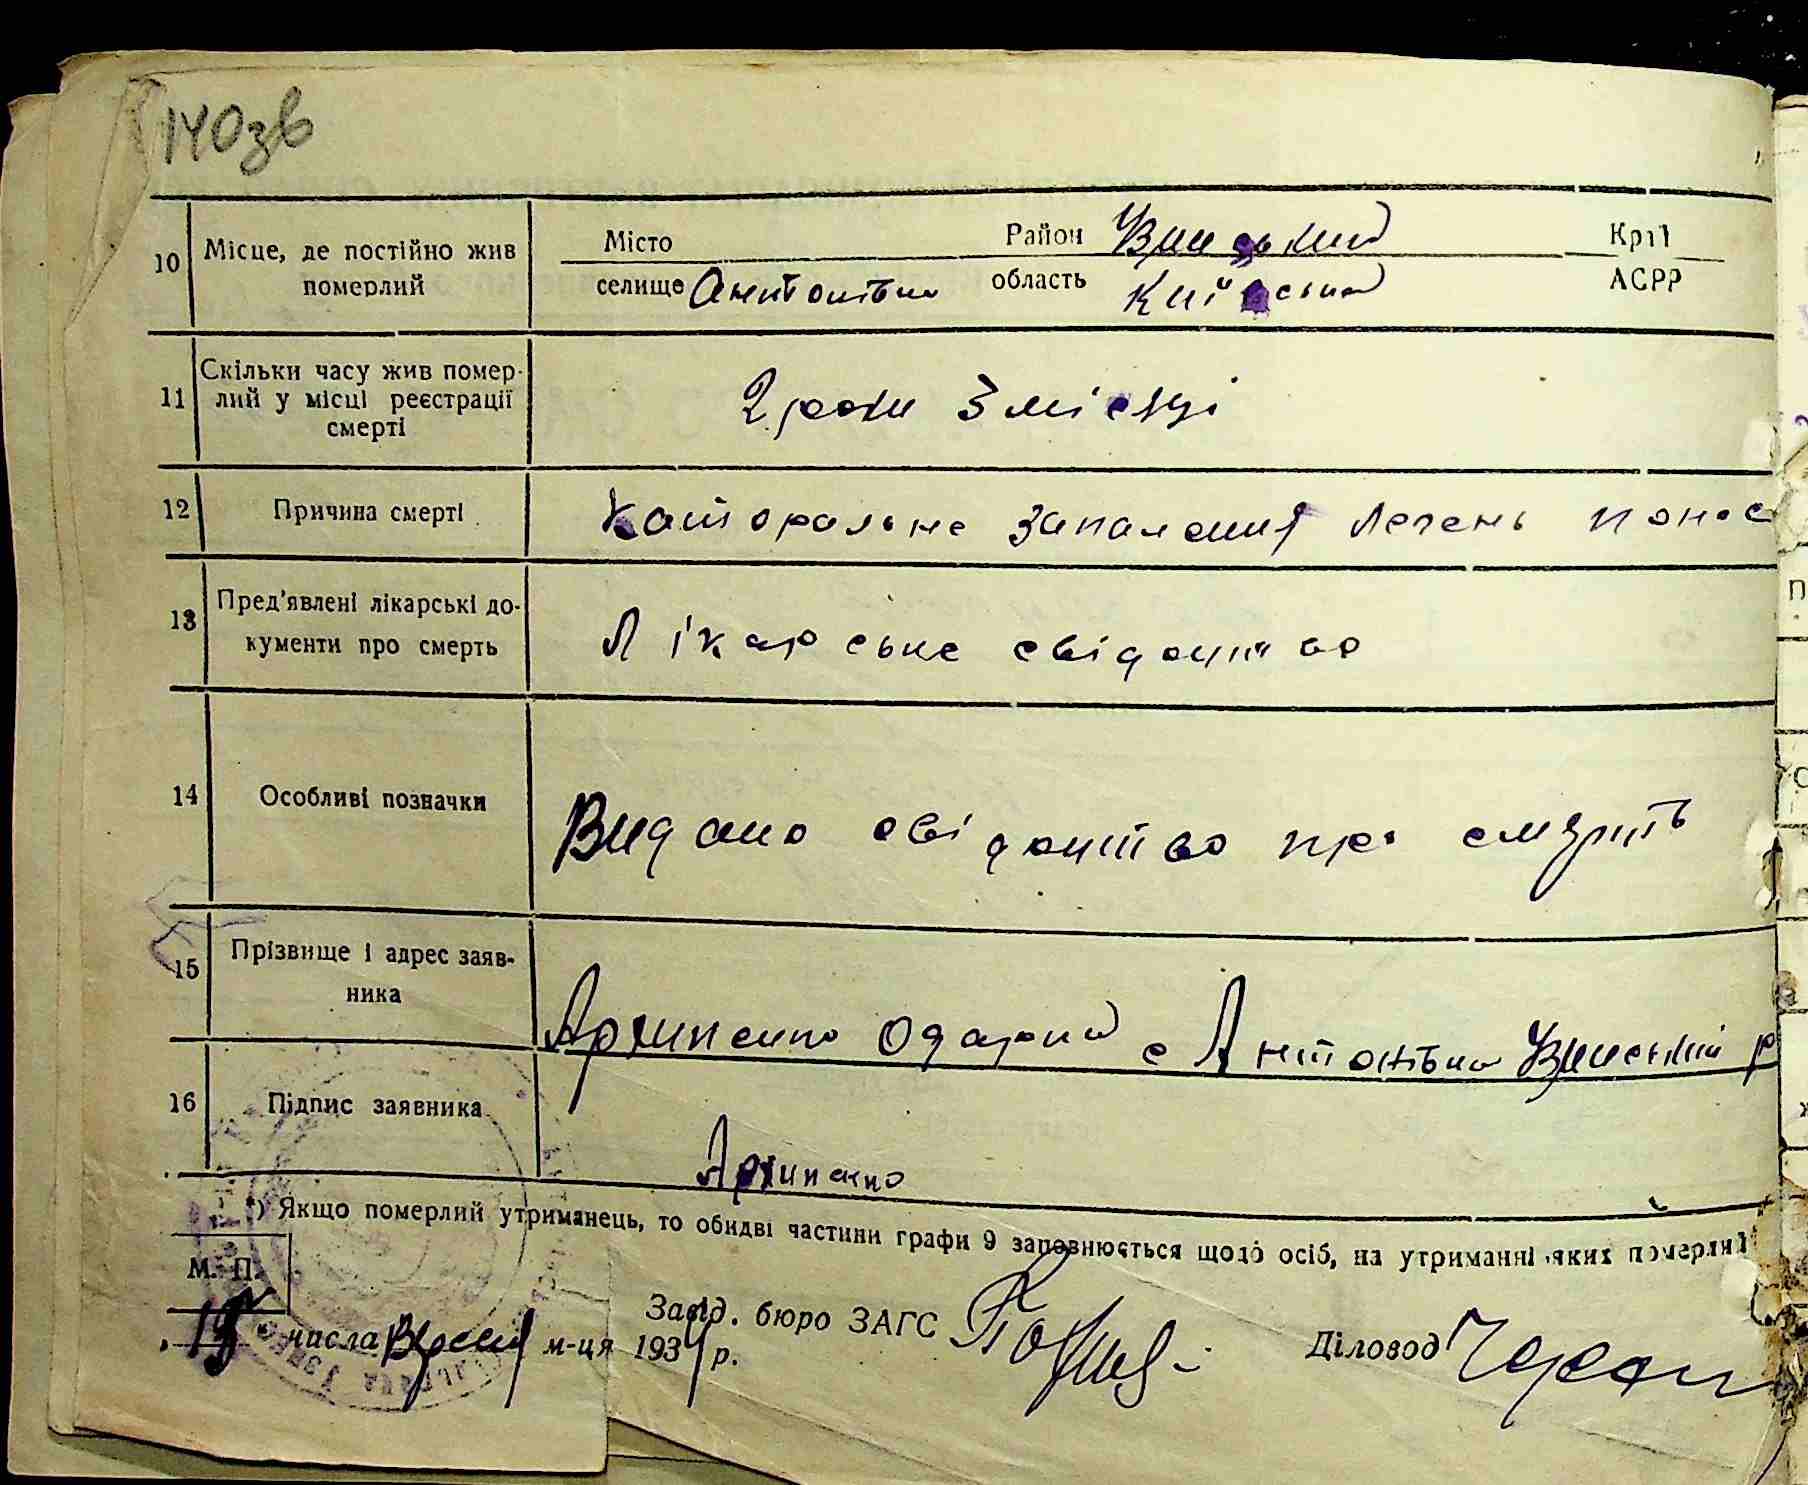 140зв
10 Місце, де постійно жив Місто Район Край
померлий селище Антонівка область Київська АСРР
Скільки часу жив помер-
11 лий у місці реєстрації 2 роки 3 місяці
смерті
12 Причина смерті Каторальне запалення легень понос
13 Пред'явлені лікарські до- Лікарське свідоцтво
кументи про смерть
14 Особливі позначки Видано свідоцтво про смерть
15 Прізвище і адрес заяв-
ника Архипенко Одарка с Антонівка р
16 Підпис заявника Архипенко
*) Якщо померлий утриманець, то обидві частини графи 9 заповнюється щодо осіб, на утриманні яких померлий
М. П.
19 числа Вресня м-ця 1934 р. Завід. бюро ЗАГС Діловод